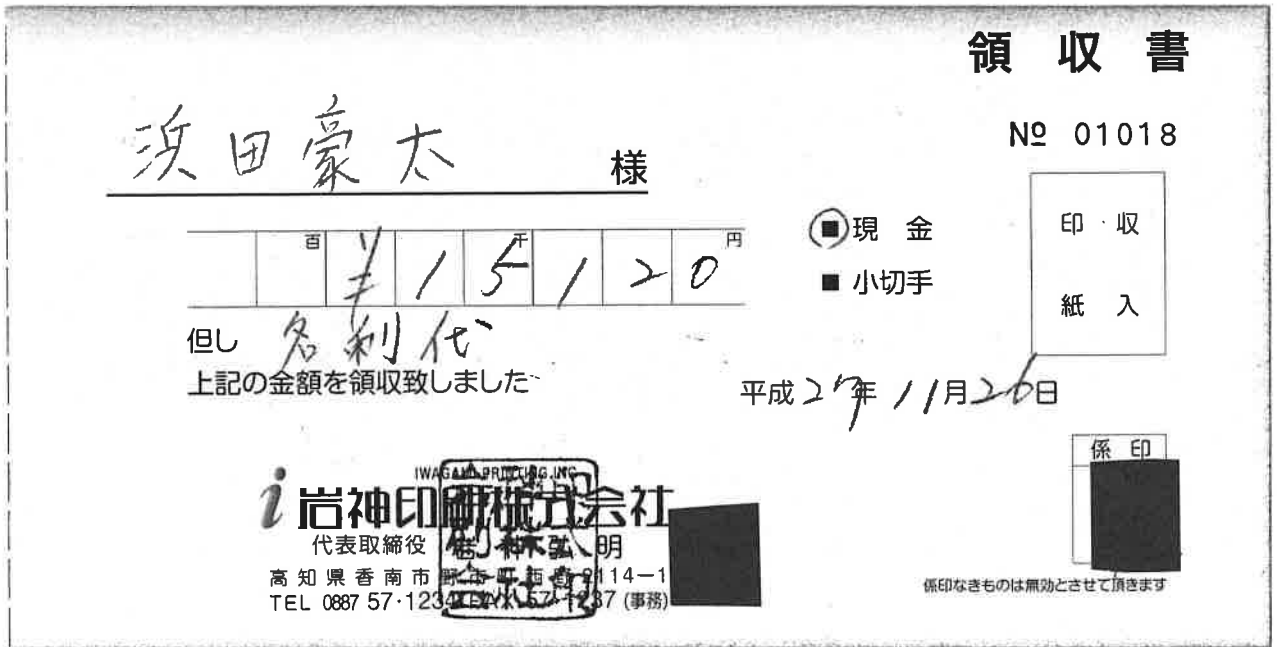 領収書
浜田豪太 様
№ 01018
百 千 円
¥15120
■現金
■小切手
印・収
紙 入
但し 名刺代
上記の金額を領収致しました
平成27年11月26日
係印
IWAGAMI PRINTING.INC
i 岩神印刷株式会社
代表取締役 岩神弘明
高知県香南市野市町西野2114-1
TEL 0887 57・1234 FAX 57-1237 (事務)
係印なきものは無効とさせて頂きます